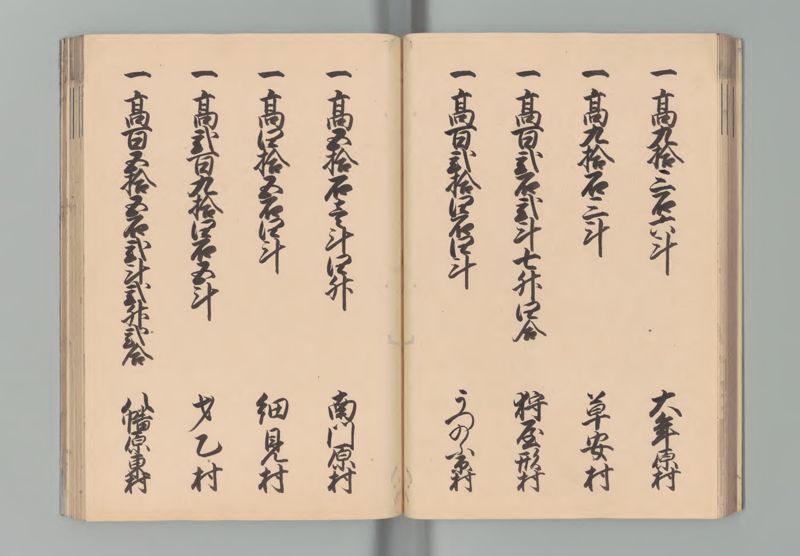 一 高九拾三石六斗 大年原村
一 高九拾石三斗 草安村
一 高百弐石弐斗七升四合 狩屋形村
一 高百弐拾四石四斗 うつの
一 高五拾石壱斗四升 南川原村
一 高四拾五石四斗 細見村
一 高弐百九拾四石五斗 才乙村
一 高百五拾五石弐斗弐升弐合 八幡原東村